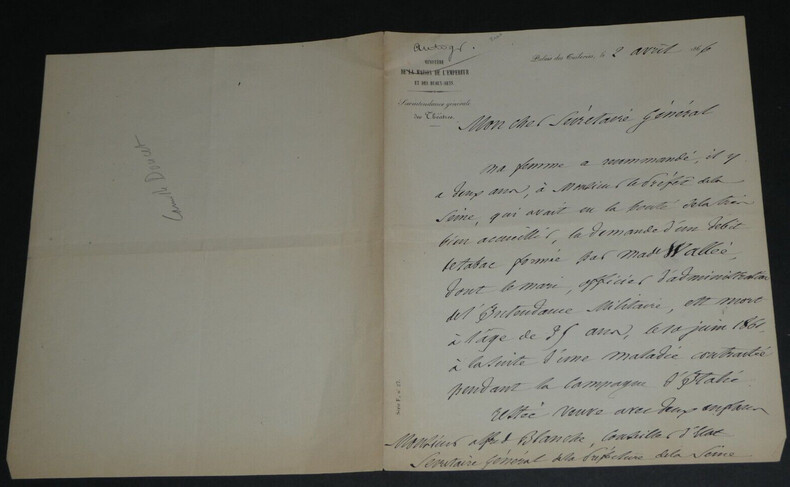 Camille Doucet
autogr.
MINISTÈRE
DE LA MAISON DE L'EMPEREUR
ET DES BEAUX-ARTS
Surintendance générale
des Théâtres
Palais des Tuileries, le 2 avril 66
Mon cher Secrétaire Général
ma femme a recommandé, il y
a deux ans, à Monsieur le Préfet de la
Seine, qui avait eu la bonté de la très
bien accueillir, la demande d'un débit
de tabac formée par made Wallée,
dont le mari, officier d'administration
de l'Intendance Militaire, est mort
à l'âge de 35 ans, le 10 juin 1861
à la suite d'une maladie contractée
pendant la Campagne d'Italie
restée veuve avec deux enfans
Monsieur alfred Blanche, Conseiller d'Etat
Secrétaire Général de la Préfecture de la Seine